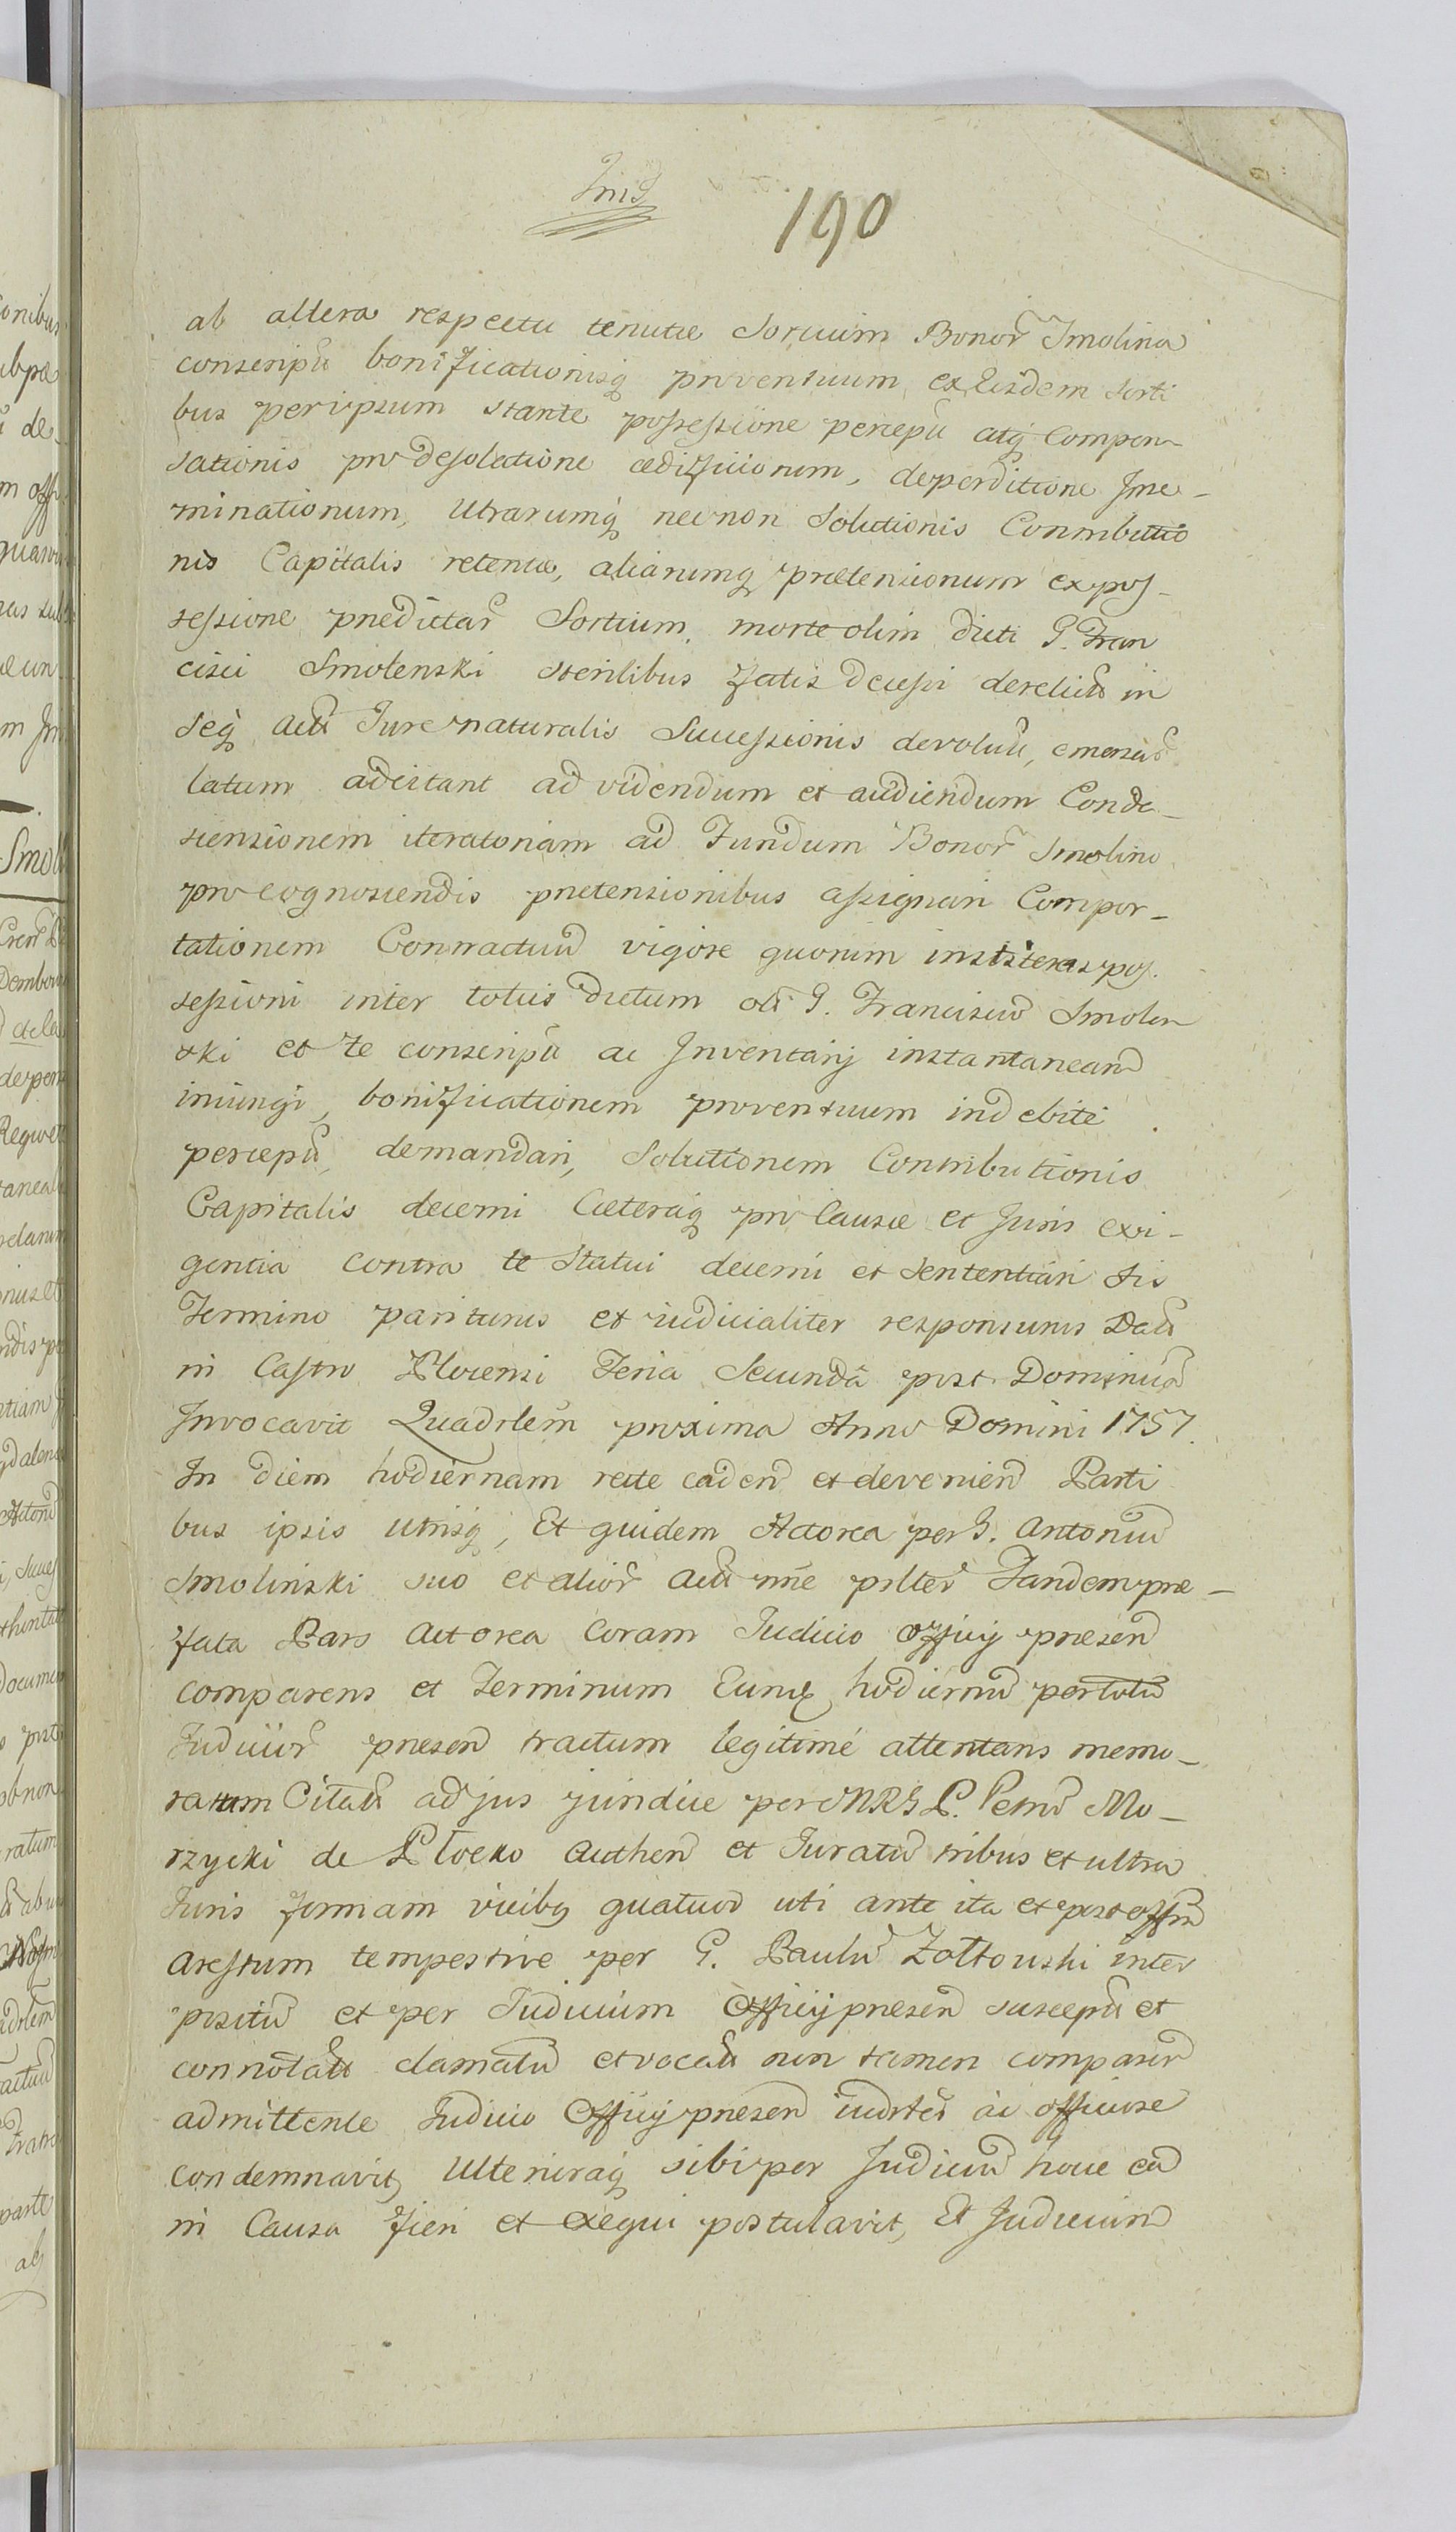 190
ab altera respectu tenutæ Sortium Bonor Smolino
conscript bonificationisq proventuum ex eisdem sorti
bus per ipsum stante possessione percept atq compen
sationis pro desolatione ædificiorum, deperditione Inse-
minationum, utrarumq necnon Solutionis Contributio
nis Capitalis retentæ, aliarumq prætensionum ex pos-
sessione prædictar Sortium, morte olim dicti G. Fran
cisci Smolenski sterilibus fatis decessi derelict in
seq act Jure naturalis Successionis devolut, emersar
latum adcitant ad videndum et audiendum Conde-
scensionem iteratoriam ad Fundum Bonor Smolino
pro cognoscendis prætensionibus assignari Compor-
tationem Contractuum vigore quorum institeras pos.
sessioni inter totius dictum oli G. Franciscum Smolen
ski et Te conscript ac Inventarij instantaneam
iniungi, bonificationem proventuum indebite
percept demandari, Solutionem Contributionis
Capitalis decerni Cæteraq pro Causæ et Juris exi-
gentia contra te statui decerni et sententiari sis
Termino pariturus et iudicialiter responsurus Dat
in Castro Plocensi Feria Secunda post Dominicam
Invocavit Quadrlem proxima Anno Domini 1757.
In diem hodiernam recte caden et devenien Parti
bus ipsis utrisq, Et quidem Actorea per G. Antonium
Smolinski suo et alior act nne prlter Tandem præ-
fata Pars Actorea Coram Judicio Officij præsen
comparens et Terminum Eumq hodiernum per totum
Judicior præsen tractum legitimé attentans memo-
ratum Citat ad jus juridice per MRGL. Petrum Mo-
rzycki de Płocko Authen et Juratum tribus et ultra
Juris formam vicibq quatuor uti ante ita et post offm
arestum tempestive per G. Paulum Zołtowski inter
positum et per Judicium Officij præsen suscept et
connotat clamatum et vocat non tamen comparen
admittente Judicio Officij præsen iudrter ac officiose
condemnavit, Ulterioraq sibi per Judicium hocce ea
in Causa fieri et exequi postulavit, Et Judicium